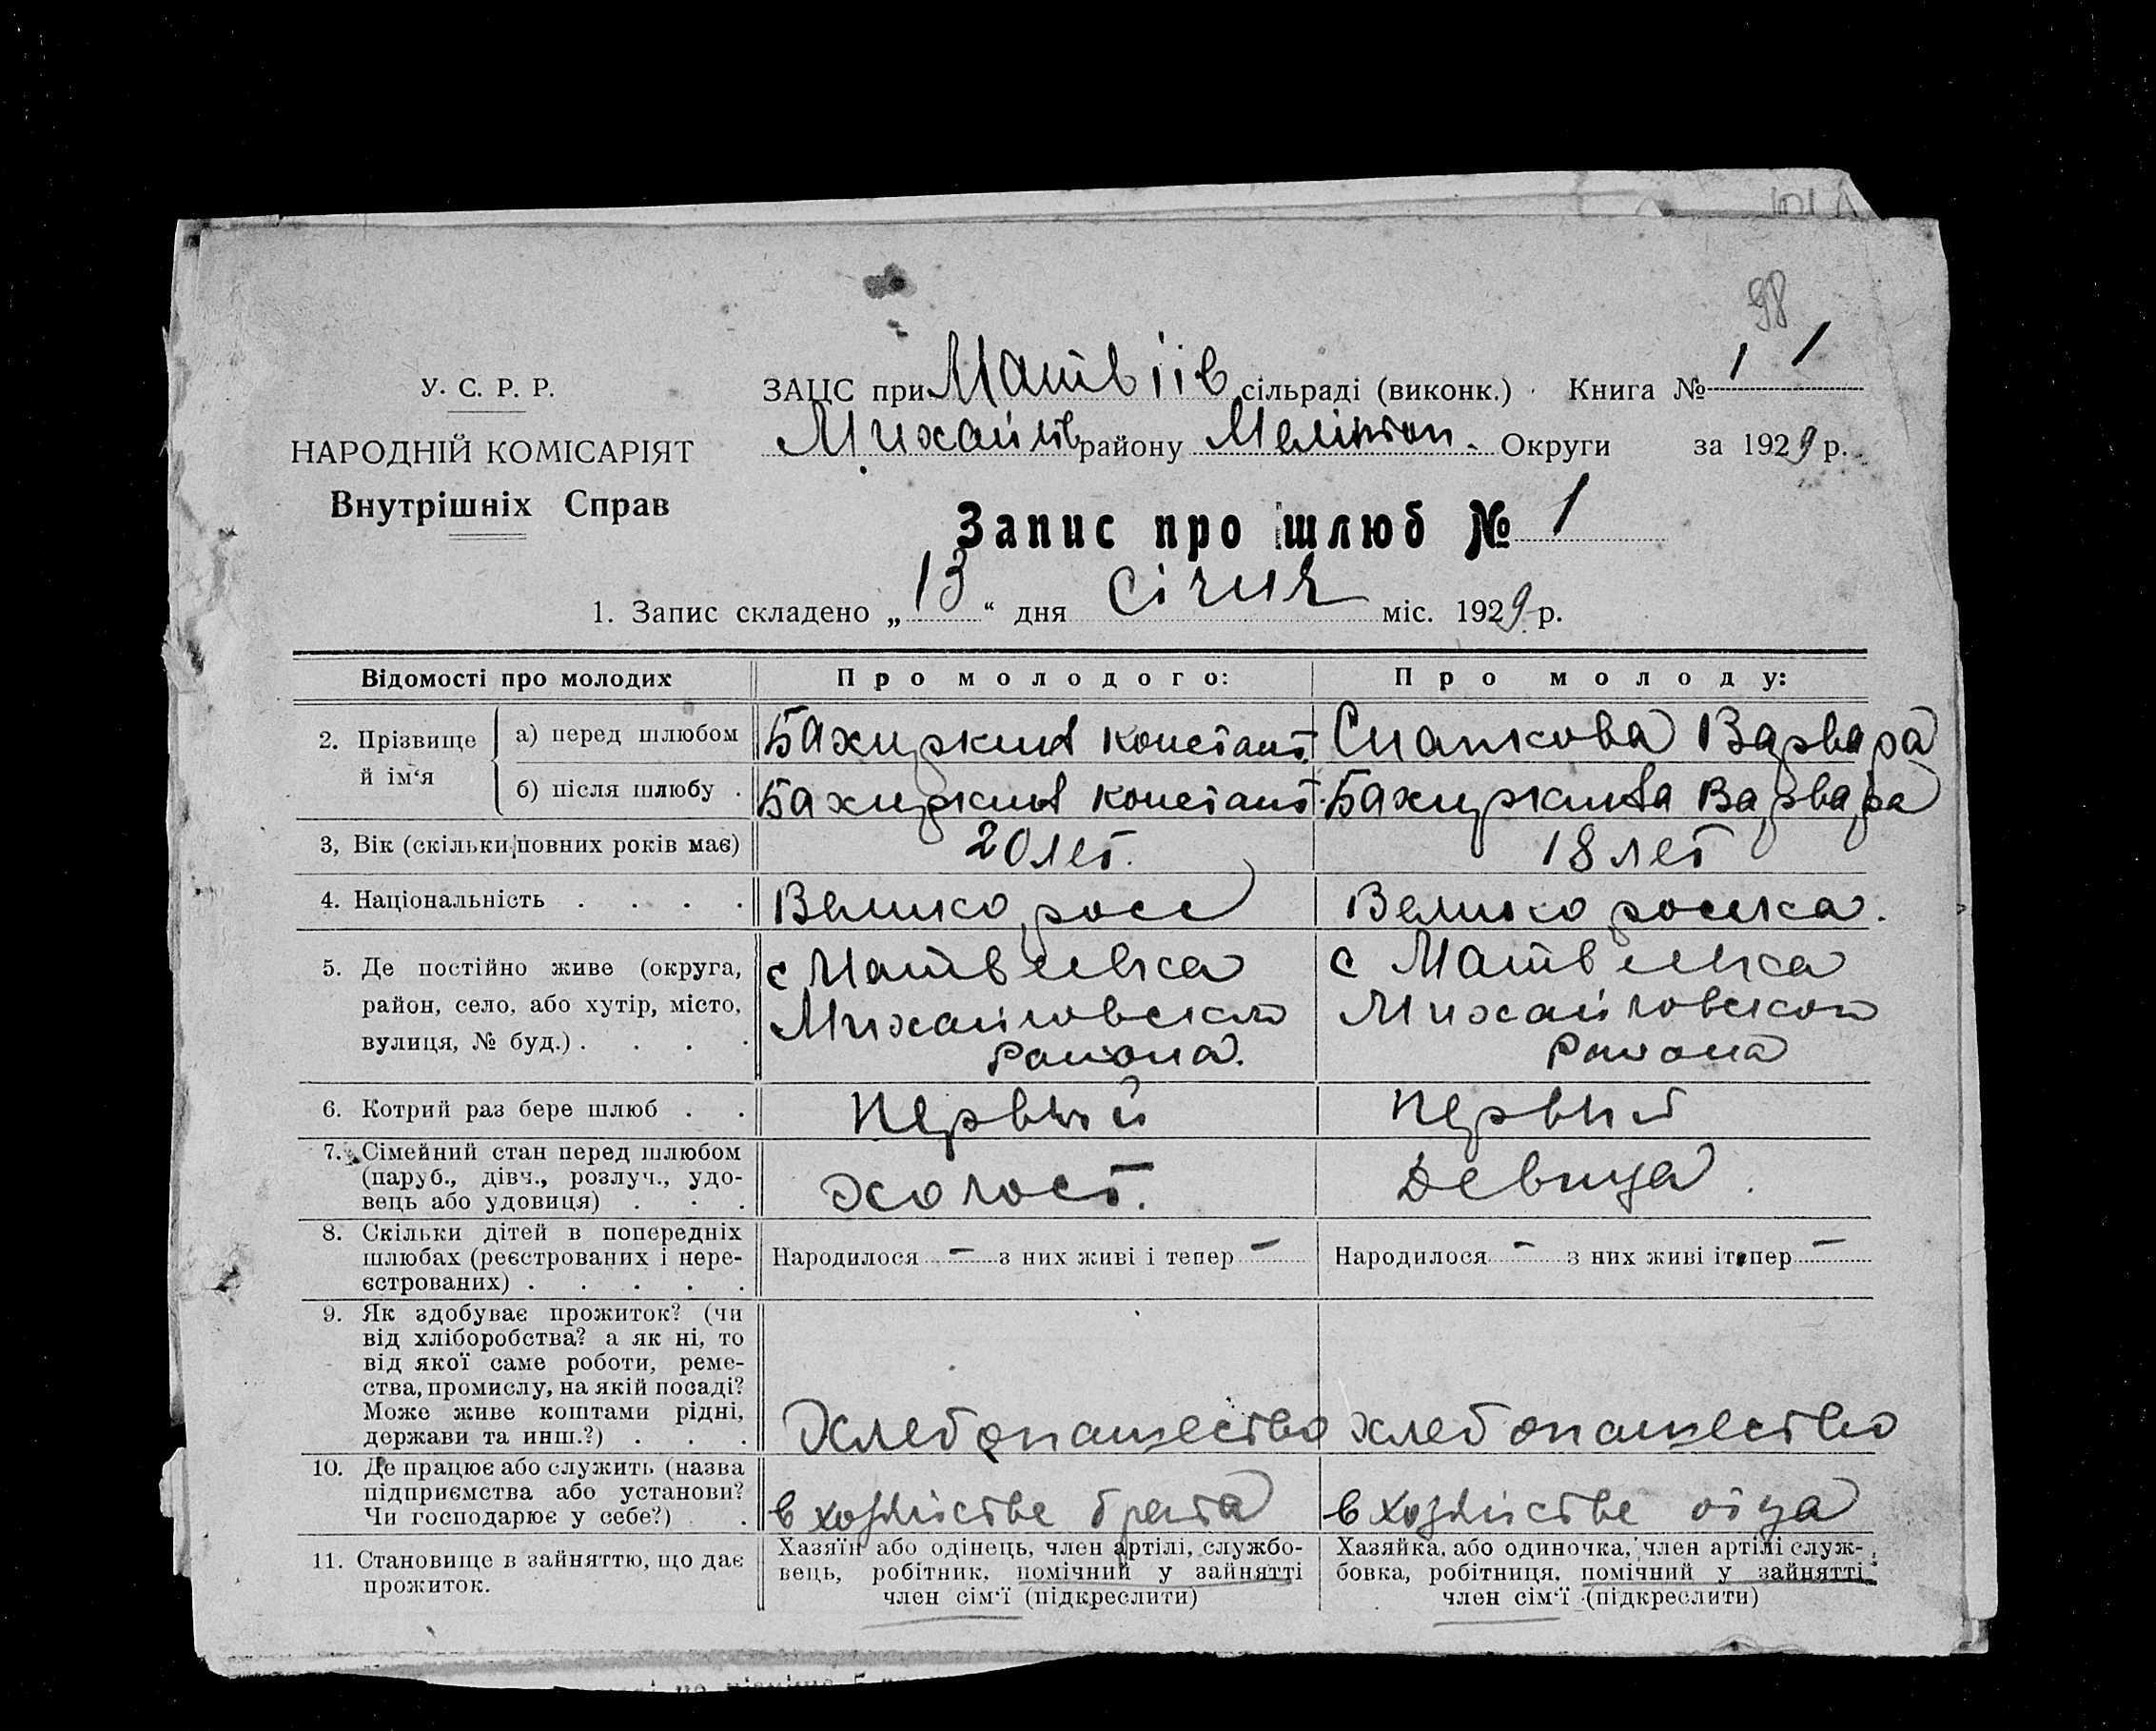 98
У. С. Р. Р.
НАРОДНІЙ КОМІСАРІЯТ
Внутрішніх Справ
ЗАЦС при Матвіїв сільраді (виконк.) Книга № 1 1
Михайлів району Меліктоп. Округи за 1929 р.
Запис про шлюб № 1
1. Запис складено „13“ дня Січня міс. 1929 р.
Відомості про молодих Про молодого: Про молоду:
2. Прізвище й ім‘я
а) перед шлюбом Бахиркин Констант. Снапкова Варвара
б) після шлюбу . Бахиркин Констант. Бахиркина Варвара
3, Вік (скільки повних років має) 20 лет. 18 лет
4. Національність . . . . Великоросс Великоросска.
5. Де постійно живе (округа,
район, село, або хутір, місто,
вулиця, № буд.) . . . .
с Матвеевка
Михайловского
Района.
с Матвеевка
Михайловского
Района
6. Котрий раз бере шлюб . . Первый Первый
7. Сімейний стан перед шлюбом
(паруб., дівч., розлуч., удо-
вець або удовиця) . . .
Холост. Девица.
8. Скільки дітей в попередніх
шлюбах (реєстрованих і нере-
єстрованих) . . . . .
Народилося – з них живі і тепер –
Народилося – з них живі ітепер –
9. Як здобуває прожиток? (чи
від хліборобства? а як ні, то
від якої саме роботи, реме-
ства, промислу, на якій посаді?
Може живе коштами рідні,
держави та инш.?) . . .
Хлебопашество хлебопашество
10. Де працює або служить (назва
підприємства або установи?
Чи господарює у себе?) . .
в хозяйстве брата в хозяйстве отца
11. Становище в зайняттю, що дає
прожиток.
Хазяїн або одінець, член артілі, службо-
вець, робітник, помічний у зайнятті
член сім‘ї (підкреслити)
Хазяйка, або одиночка, член артілі служ-
бовка, робітниця, помічний у зайнятті
член сім‘ї (підкреслити)